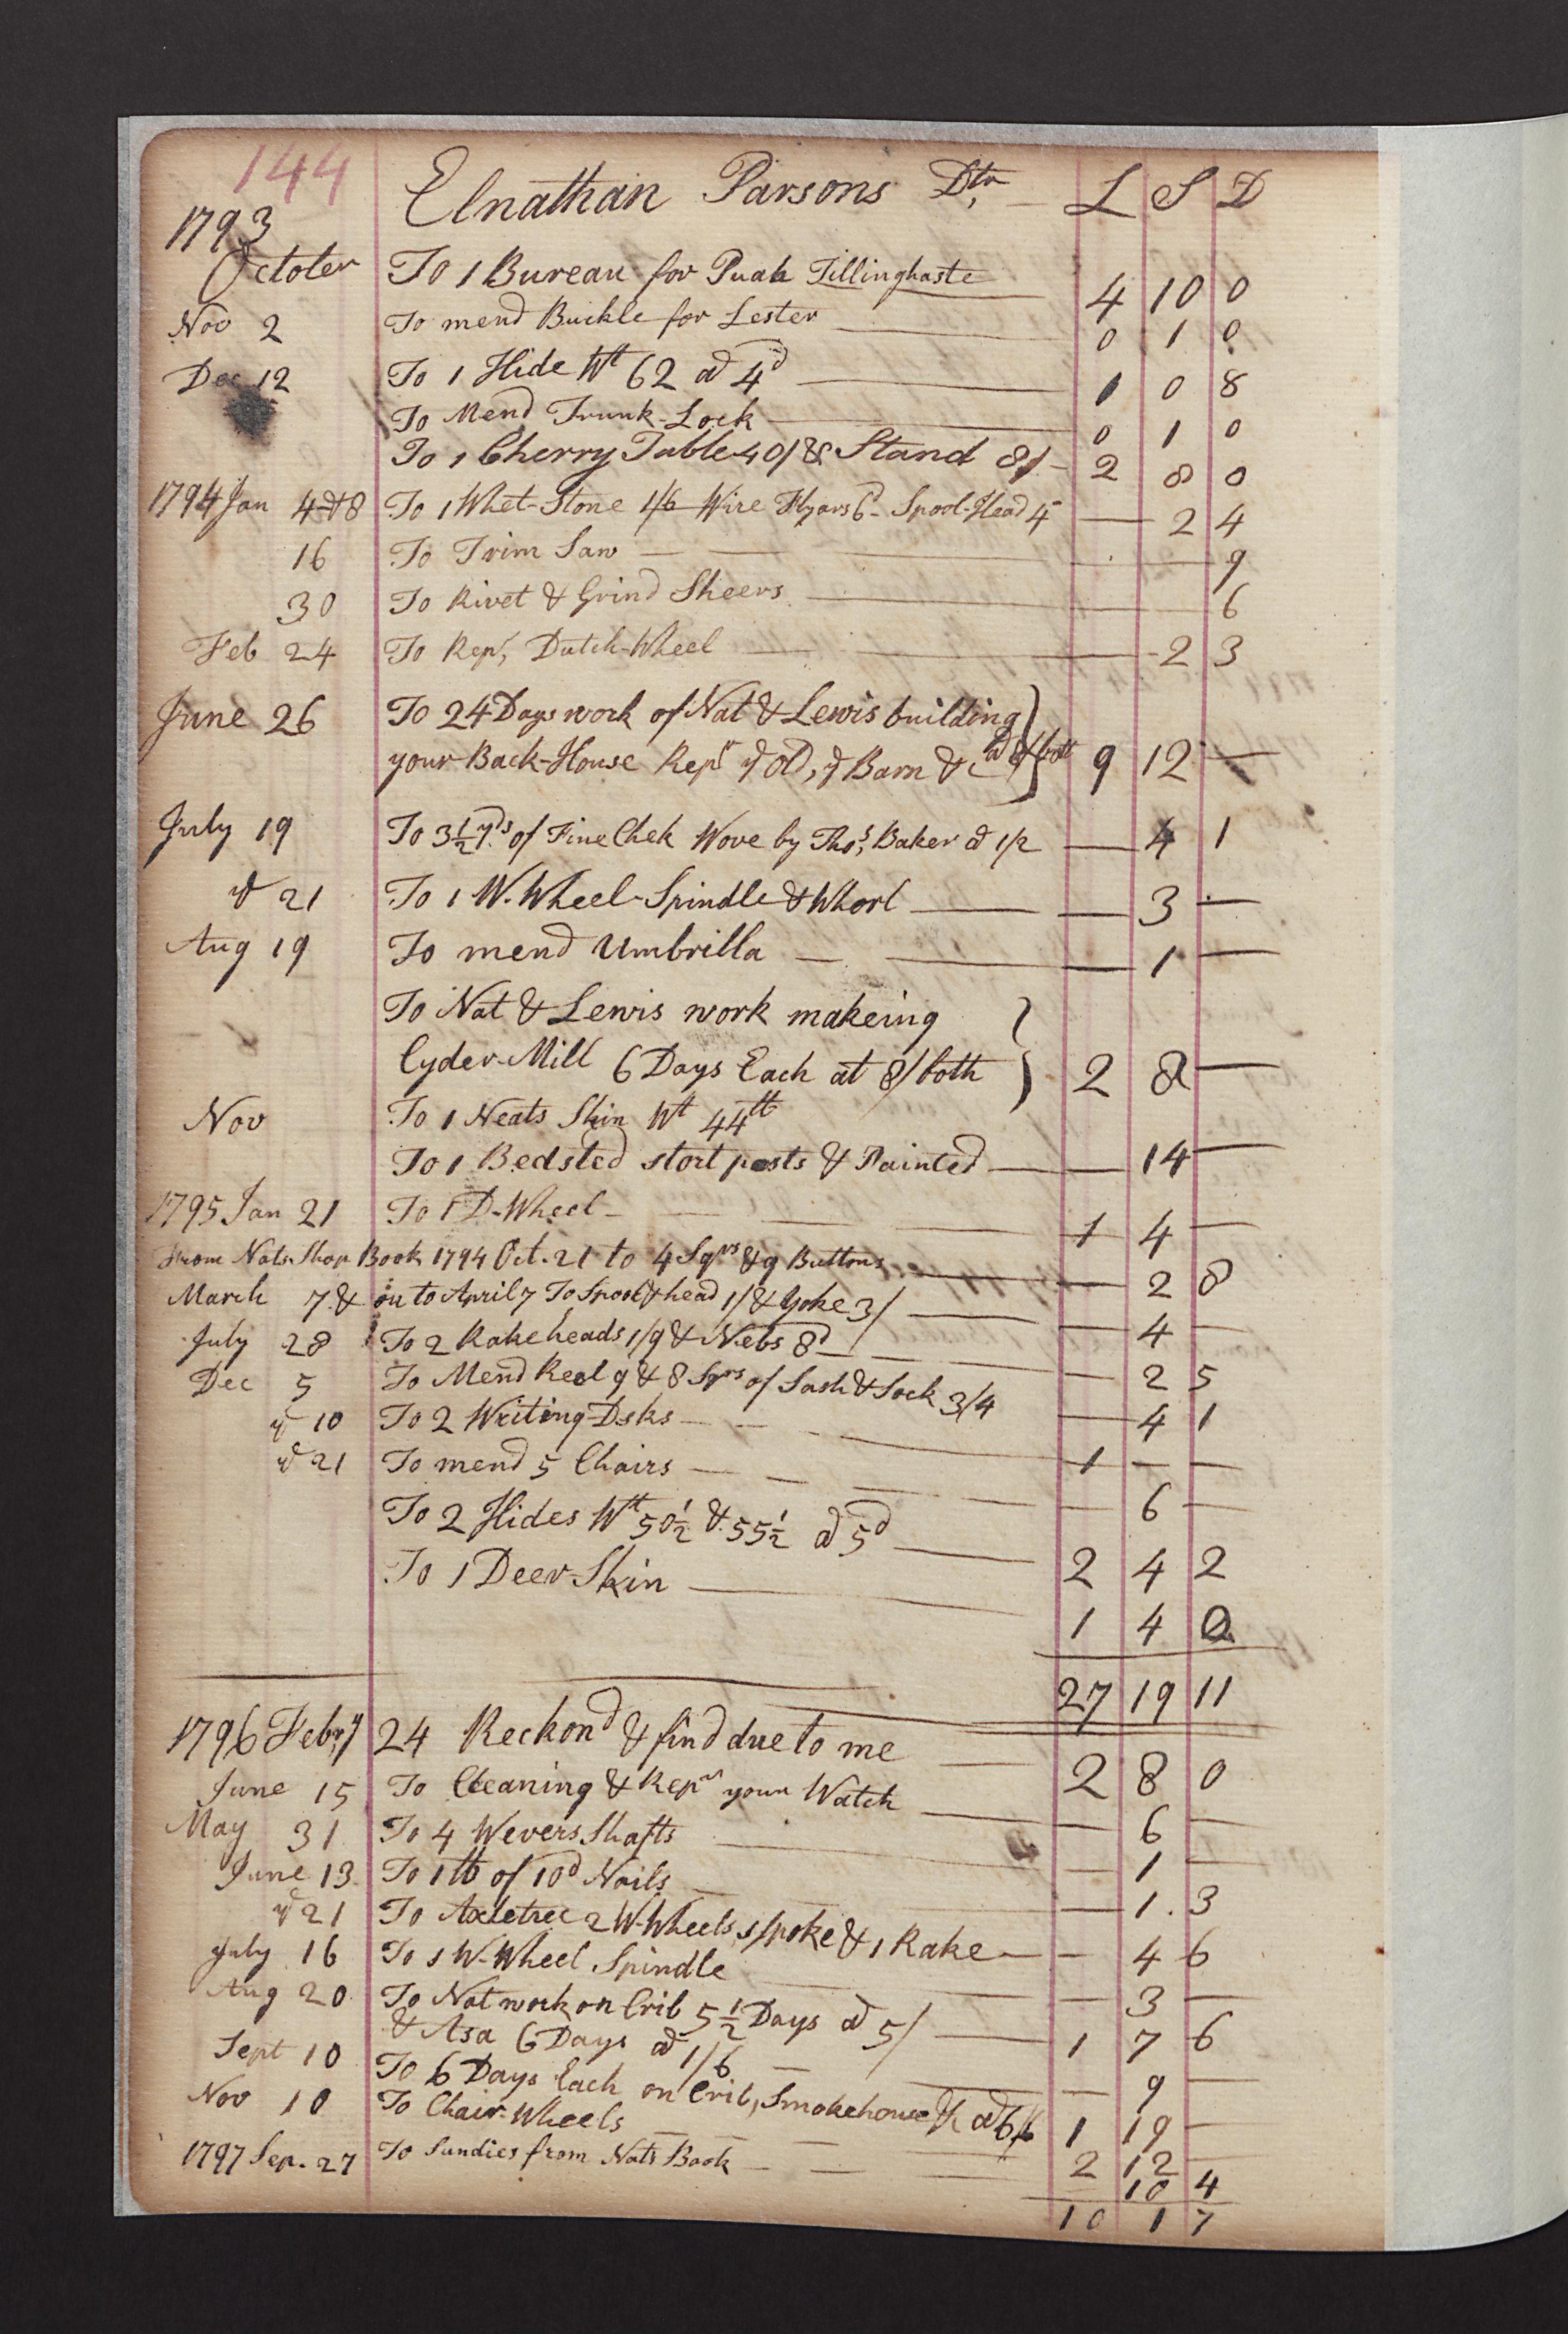 144
Elnathan Parsons Dtr. L S D
1793
October To 1 Bureau for Puah Tillinghaste 4 10 0
Nov 2 To mend Buckle for Lester 0 1 0
Dec 12 To 1 Hide Wt 62 @ 4d 1 0 8
To Mend Trunk-Lock 0 1 0
To 1 Cherry Table 40/ & Stand 8/- 2 8 0
1794 Jan 4 & 8 To 1 Whet-Stone 1/6 Wire Flyars 6d- Spool-Head 4d — 2 4
16 To Trim Saw — 9
30 To Rivet & Grind Sheers — 6
Feb 24 To Repr, Dutch-Wheel — 2 3
June 26 To 24 Days work of Nat & Lewis building
your Back-House Repr ye old, ye Barn &c @ 8/ both 9 12 —
July 19 To 3 1/2 Yds of Fine Chek Wove by Thos, Baker @ 1/2 — 4 1
ye 21 To 1 W-Wheel-Spindle & Whorl — 3 —
Aug 19 To mend Umbrilla — 1 —
To Nat & Lewis work makeing
Cyder-Mill 6 Days Each at 8/ both 2 8 —
Nov To 1 Neats Skin Wt 44 lb
To 1 Bedsted stort posts & Painted — 14 —
1795 Jan 21 To 1 D-Wheel — 1 4 —
From Nats Shop Book 1794 Oct. 21 to 4 Sqrs & 9 Buttons — 2 8
March 7 & on to April 7 To Spool & head 1/ & Yoke 3/ — 4 —
July 28 To 2 Rake heads 1/9 & Nebs 8d — 2 5
Dec 5 To Mend Reel 9 & 8 Sqrs of Sash & Lock 3/4 — 4 1
ye 10 To 2 Writing-Dsks — 1 — —
ye 21 To mend 5 Chairs — 6 —
To 2 Hides Wt 50 1/2 & 55 1/2 @ 5d 2 4 2
To 1 Deer-Skin 1 4 0
27 19 11
1796 Febry 24 Reckond & find due to me 2 8 0
June 15 To Cleaning & Repr your Watch — 6 —
May 31 To 4 Wevers Shafts — 1 —
June 13 To 1 lb of 10d Nails — 1. 3
ye 21 To Axletree 2 W-Wheels, 1 spoke & 1 Rake — 4 6
July 16 To 1 W-Wheel Spindle — 3 —
Aug 20 To Nat work on Crib 5 1/2 Days @ 5/ 1 7 6
& Asa 6 Days @ 1/6 — 9 —
Sept 10 To 6 Days Each on Crib, Smokehouse &c @ 6/6 1 19 —
Nov 10 To Chair-Wheels 2 12 —
1797 Sep. 27 To Sundies from Nats Book — 10 4
10 1 7